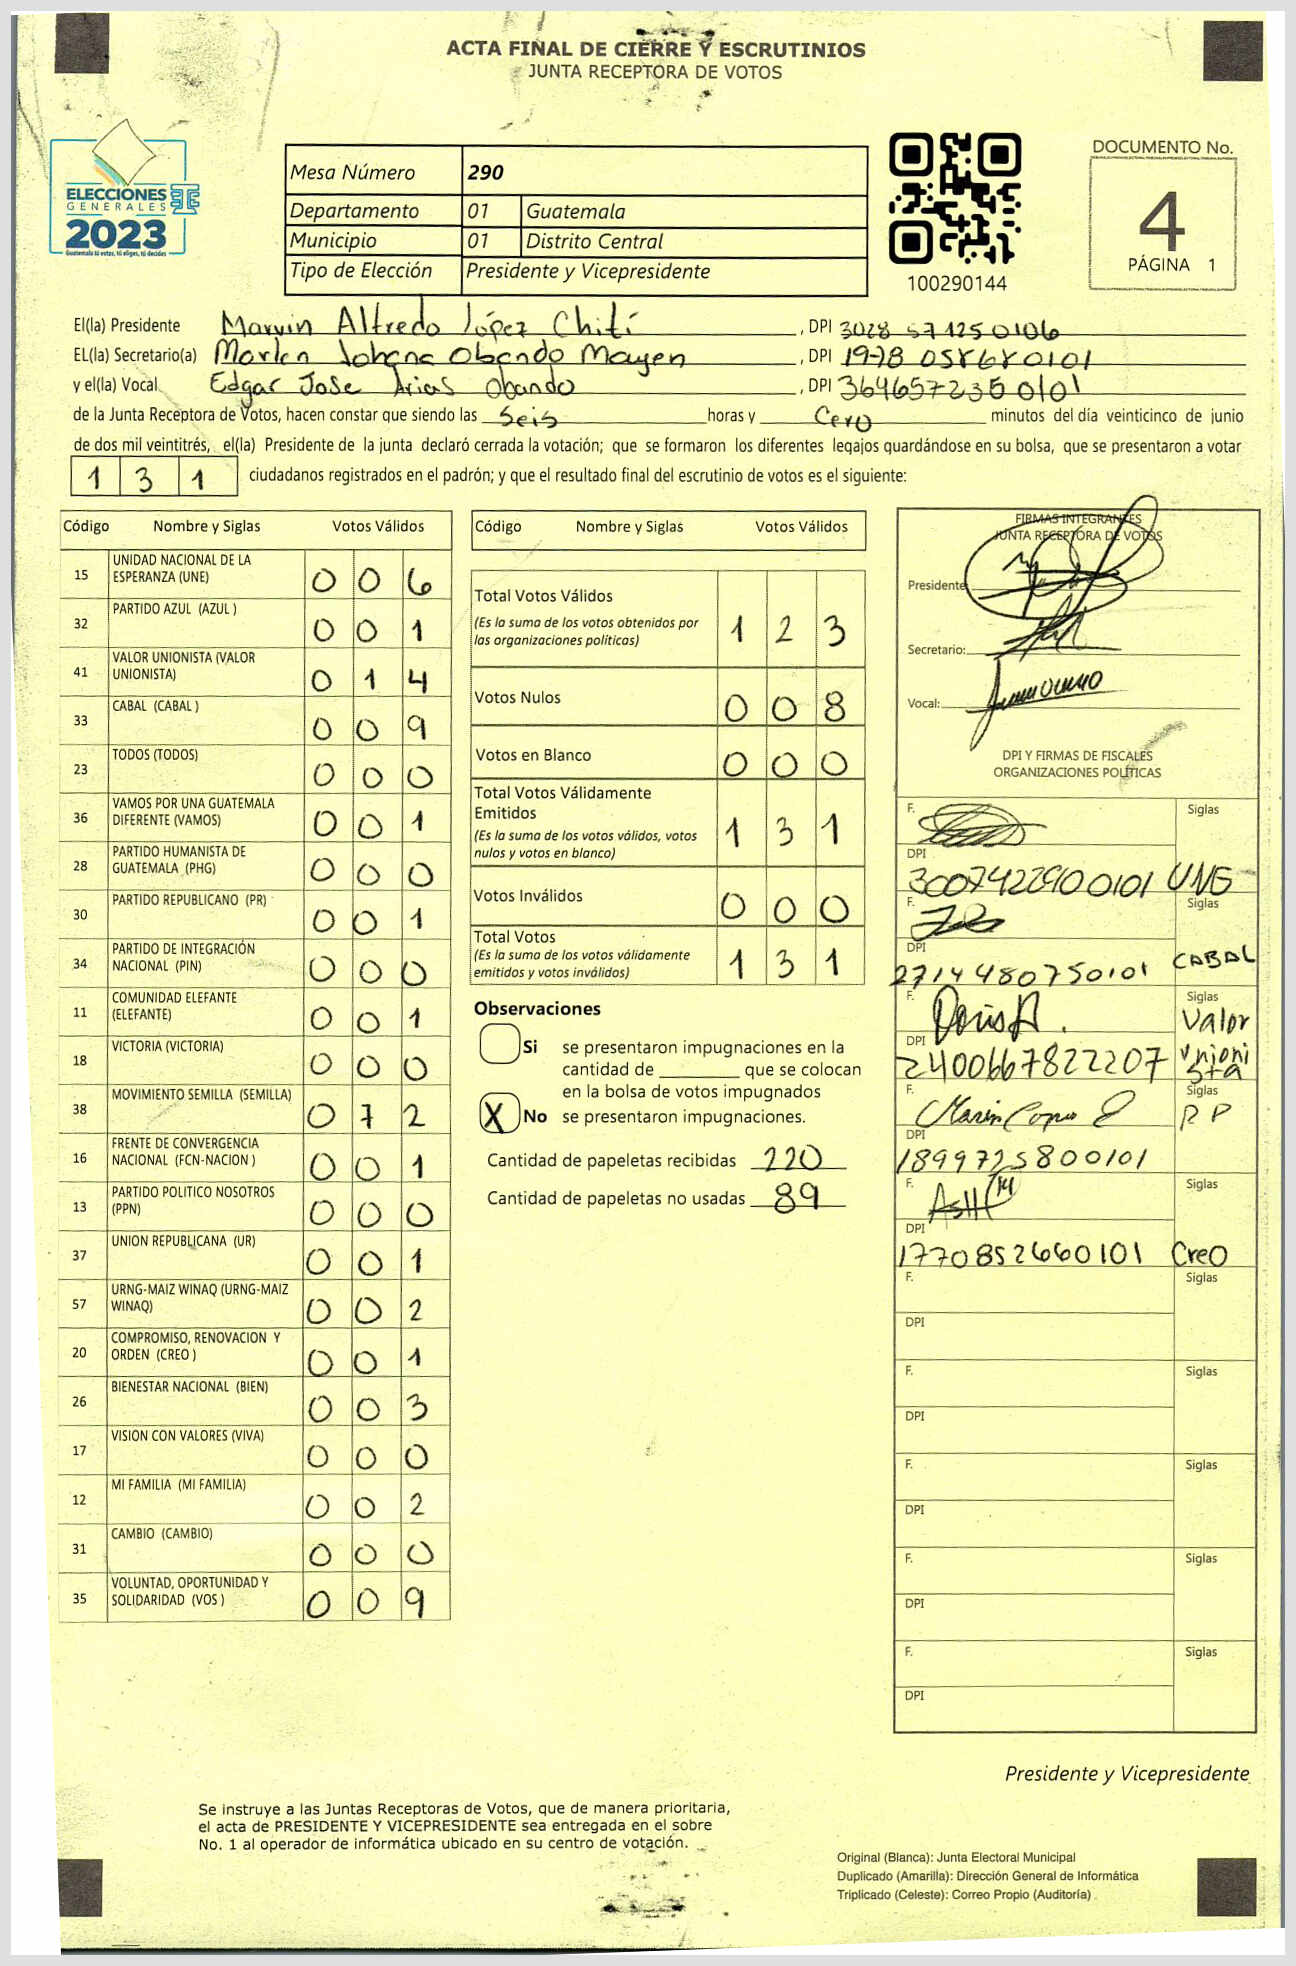 ACTA FINAL DE CIERRE Y ESCRUTINIOS
JUNTA RECEPTORA DE VOTOS
ELECCIONES
GENERALES
2023
Guatemala tú votas, tú eliges, tú decides
Mesa Número 290
Departamento 01 Guatemala
Municipio 01 Distrito Central
Tipo de Elección Presidente y Vicepresidente
100290144
DOCUMENTO No.
4
PÁGINA 1
El(la) Presidente Marvin Alfredo López Chití, DPI 3028 57125 0106
EL(la) Secretario(a) Marlen Johana Obando Mayen, DPI 1978 05868 0101
y el(la) Vocal Edgar Jose Arias Obando, DPI 364657235 0101
de la Junta Receptora de Votos, hacen constar que siendo las Seis horas y Cero minutos del día veinticinco de junio
de dos mil veintitrés, el(la) Presidente de la junta declaró cerrada la votación; que se formaron los diferentes legajos guardándose en su bolsa, que se presentaron a votar
1 3 1 ciudadanos registrados en el padrón; y que el resultado final del escrutinio de votos es el siguiente:
Código Nombre y Siglas Votos Válidos
15 UNIDAD NACIONAL DE LA ESPERANZA (UNE) 0 0 6
32 PARTIDO AZUL (AZUL ) 0 0 1
41 VALOR UNIONISTA (VALOR UNIONISTA) 0 1 4
33 CABAL (CABAL ) 0 0 9
23 TODOS (TODOS) 0 0 0
36 VAMOS POR UNA GUATEMALA DIFERENTE (VAMOS) 0 0 1
28 PARTIDO HUMANISTA DE GUATEMALA (PHG) 0 0 0
30 PARTIDO REPUBLICANO (PR) 0 0 1
34 PARTIDO DE INTEGRACIÓN NACIONAL (PIN) 0 0 0
11 COMUNIDAD ELEFANTE (ELEFANTE) 0 0 1
18 VICTORIA (VICTORIA) 0 0 0
38 MOVIMIENTO SEMILLA (SEMILLA) 0 7 2
16 FRENTE DE CONVERGENCIA NACIONAL (FCN-NACION ) 0 0 1
13 PARTIDO POLITICO NOSOTROS (PPN) 0 0 0
37 UNION REPUBLICANA (UR) 0 0 1
57 URNG-MAIZ WINAQ (URNG-MAIZ WINAQ) 0 0 2
20 COMPROMISO, RENOVACION Y ORDEN (CREO ) 0 0 1
26 BIENESTAR NACIONAL (BIEN) 0 0 3
17 VISION CON VALORES (VIVA) 0 0 0
12 MI FAMILIA (MI FAMILIA) 0 0 2
31 CAMBIO (CAMBIO) 0 0 0
35 VOLUNTAD, OPORTUNIDAD Y SOLIDARIDAD (VOS ) 0 0 9
Código Nombre y Siglas Votos Válidos
Total Votos Válidos 1 2 3
(Es la suma de los votos obtenidos por
las organizaciones políticas)
Votos Nulos 0 0 8
Votos en Blanco 0 0 0
Total Votos Válidamente
Emitidos 1 3 1
(Es la suma de los votos válidos, votos
nulos y votos en blanco)
Votos Inválidos 0 0 0
Total Votos 1 3 1
(Es la suma de los votos válidamente
emitidos y votos inválidos)
Observaciones
Si se presentaron impugnaciones en la
cantidad de ________ que se colocan
en la bolsa de votos impugnados
X No se presentaron impugnaciones.
Cantidad de papeletas recibidas 220
Cantidad de papeletas no usadas 89
FIRMAS INTEGRANTES
JUNTA RECEPTORA DE VOTOS
Presidente:
Secretario:
Vocal:
DPI Y FIRMAS DE FISCALES
ORGANIZACIONES POLÍTICAS
F. Siglas
DPI
3007422900101 UNE
F. Siglas
DPI
2714480750101 CABAL
F. Doris A. Siglas
DPI Valor
2400667822207 Unioni
sta
F. Siglas
DPI RP
1899725800101
F. Siglas
DPI
1770852660101 Creo
F. Siglas
DPI
F. Siglas
DPI
F. Siglas
DPI
F. Siglas
DPI
F. Siglas
DPI
Presidente y Vicepresidente
Se instruye a las Juntas Receptoras de Votos, que de manera prioritaria,
el acta de PRESIDENTE Y VICEPRESIDENTE sea entregada en el sobre
No. 1 al operador de informática ubicado en su centro de votación.
Original (Blanca): Junta Electoral Municipal
Duplicado (Amarilla): Dirección General de Informática
Triplicado (Celeste): Correo Propio (Auditoría)